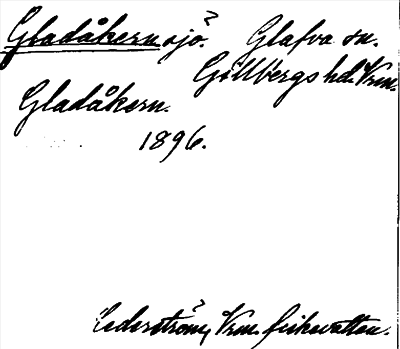 Gladåkern sjö? Glafva sn.
Gillbergs hd. Vrm.
Gladåkern.
1896.
Cederström, Vrm. fiskevatten.